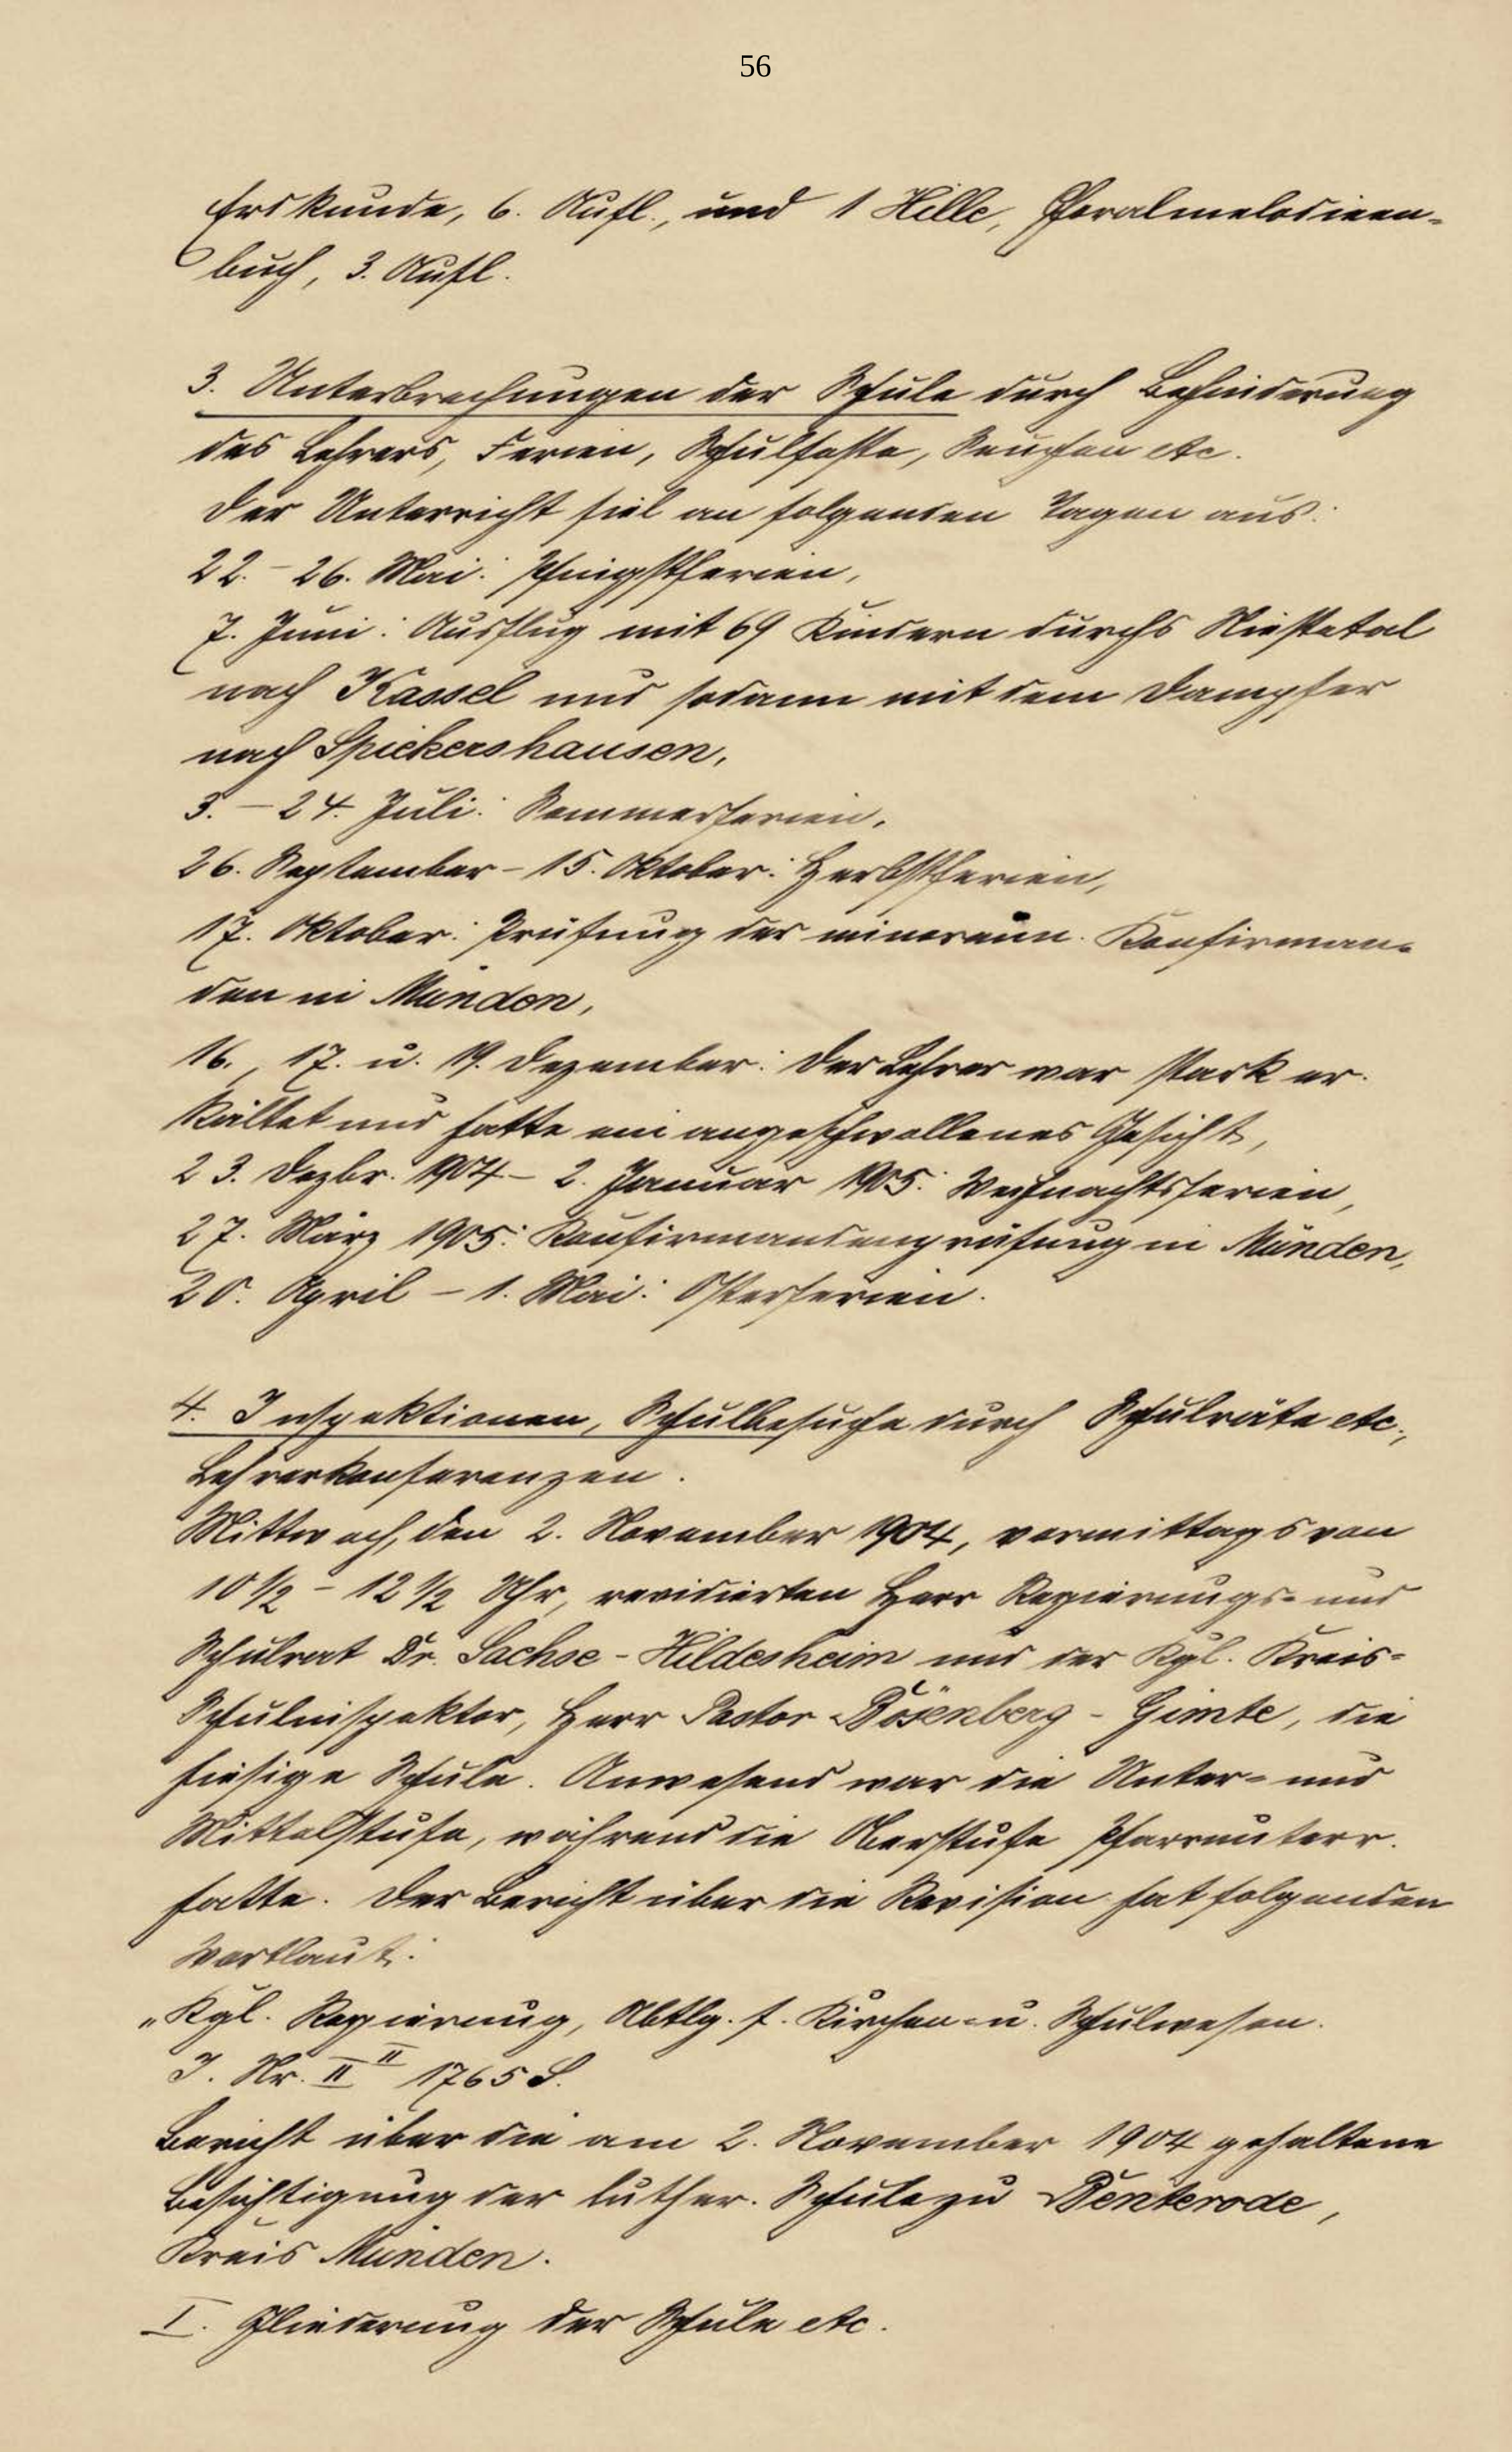 56
Erdkunde, 6. Aufl., und 1 Hille, Choralmelodieen-
buch, 3. Aufl.
3. Unterbrechungen der Schule durch Behinderung
des Lehrers, Ferien, Schulfeste, Seuchen etc.
Der Unterricht fiel an folgenden Tagen aus:
22. - 26. Mai: Pfingstferien,
7. Juni: Ausflug mit 69 Kindern durchs Niestetal
nach Kassel und sodann mit dem Dampfer
nach Spiekershausen,
3. - 24. Juli: Sommerferien,
26. September - 15. Oktober: Herbstferien,
17. Oktober: Prüfung der Konfirman-
den in Münden,
16., 17. u. 19. Dezember: Der Lehrer war stark er-
kältet und hatte ein angeschwollenes Gesicht,
23. Dezbr. 1904 - 2. Januar 1905: Weihnachtsferien,
27. März 1905: Konfirmandenprüfung in Münden,
20. April - 1. Mai: Osterferien.
4. Inspektionen, Schulbesuche durch Schulräte etc.,
Lehrerkonferenzen.
Mittwoch, den 2. November 1904, vormittags von
10 1/2 - 12 1/2 Uhr, revidierten Herr Regierungs- und
Schulrat Dr. Sachse - Hildesheim und der Kgl. Kreis-
Schulinspektor, Herr Pastor Bösenberg - Gimte, die
hiesige Schule. Anwesend war die Unter- und
Mittelstufe, während die Oberstufe Pfarrunterr.
hatte. Der Bericht über die Revision hat folgenden
Wortlaut:
„Kgl. Regierung, Abtlg. f. Kirchen- u. Schulwesen.
J. Nr. II II 1765 S.
Bericht über die am 2. November 1904 gehaltene
Besichtigung der luther. Schule zu Benterode,
Kreis Münden.
I. Gliederung der Schule etc.